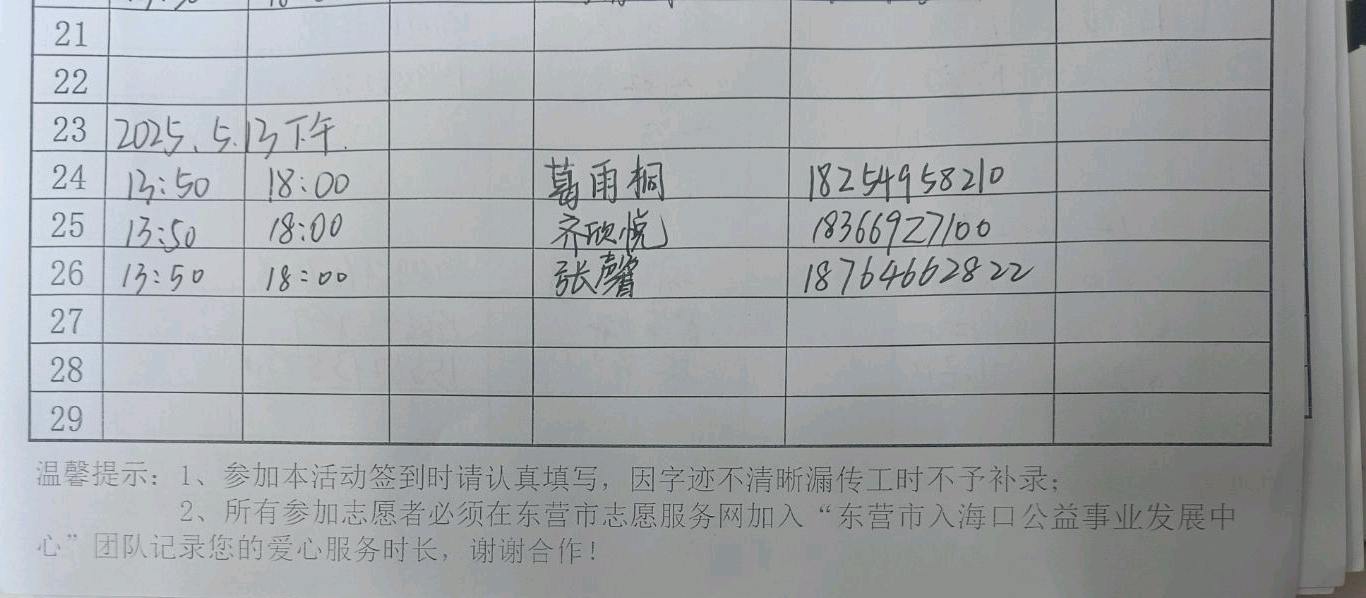 21
22
23 2025.5.13下午.
24 13:50 18:00 葛雨桐 18254958210
25 13:50 18:00 齐欣悦 18366927100
26 13:50 18:00 张馨 18764662822
27
28
29
温馨提示：1、参加本活动签到时请认真填写，因字迹不清晰漏传工时不予补录；
2、所有参加志愿者必须在东营市志愿服务网加入“东营市入海口公益事业发展中
心”团队记录您的爱心服务时长，谢谢合作！